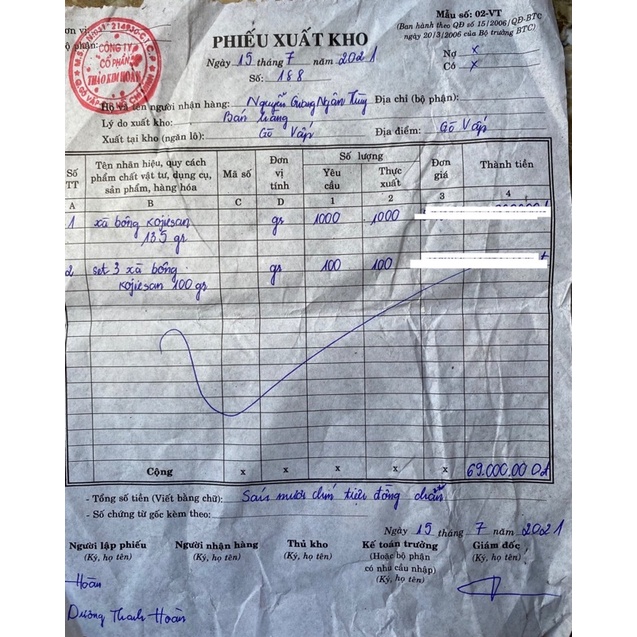 Mẫu số: 02-VT
(Ban hành theo QĐ số 15/2006/QĐ-BTC
ngày 20/3/2006 của Bộ trưởng BTC)
CÔNG TY
CỔ PHẦN
THẢO KIM HOÀN
PHIẾU XUẤT KHO
Ngày 15 tháng 7 năm 2021
Số: 188
Nợ x
Có x
Họ và tên người nhận hàng: Nguyễn Quang Ngân Thùy Địa chỉ (bộ phận):
Lý do xuất kho: Bán hàng
Xuất tại kho (ngăn lô): Gò Vấp Địa điểm: Gò Vấp
Số TT Tên nhãn hiệu, quy cách phẩm chất vật tư, dụng cụ, sản phẩm, hàng hóa Mã số Đơn vị tính Số lượng Đơn giá Thành tiền
Yêu cầu Thực xuất
A B C D 1 2 3 4
1 xà bông kojiesan gr 1000 1000
135 gr
2 set 3 xà bông gr 100 100
kojiesan 100 gr
Cộng x x x x x 69.000.000đ
- Tổng số tiền (Viết bằng chữ): Sáu mươi chín triệu đồng chẵn
- Số chứng từ gốc kèm theo:
Ngày 15 tháng 7 năm 2021
Người lập phiếu Người nhận hàng Thủ kho Kế toán trưởng Giám đốc
(Ký, họ tên) (Ký, họ tên) (Ký, họ tên) (Hoặc bộ phận (Ký, họ tên)
có nhu cầu nhập)
(Ký, họ tên)
Hoàn
Dương Thanh Hoàn